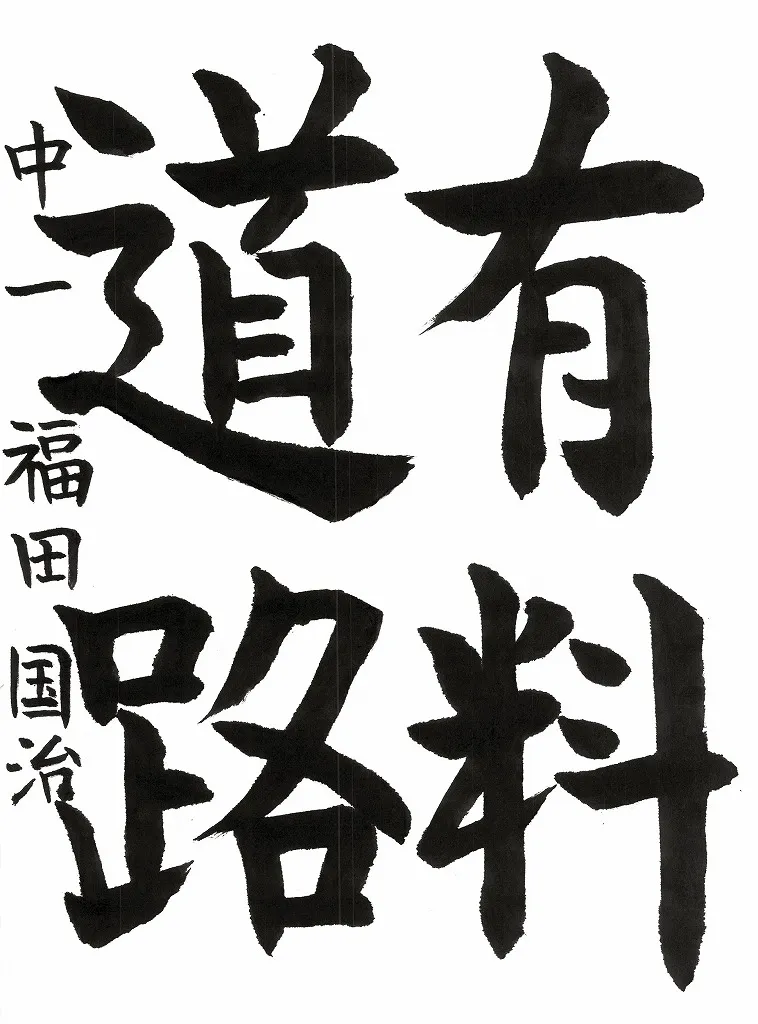 有料
道路
中一 福田 国治